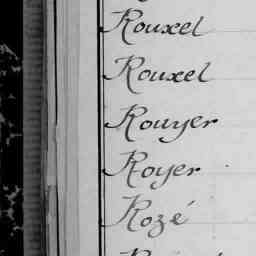 Rouxel
Rouxel
Rouyer
Royer
Rozé